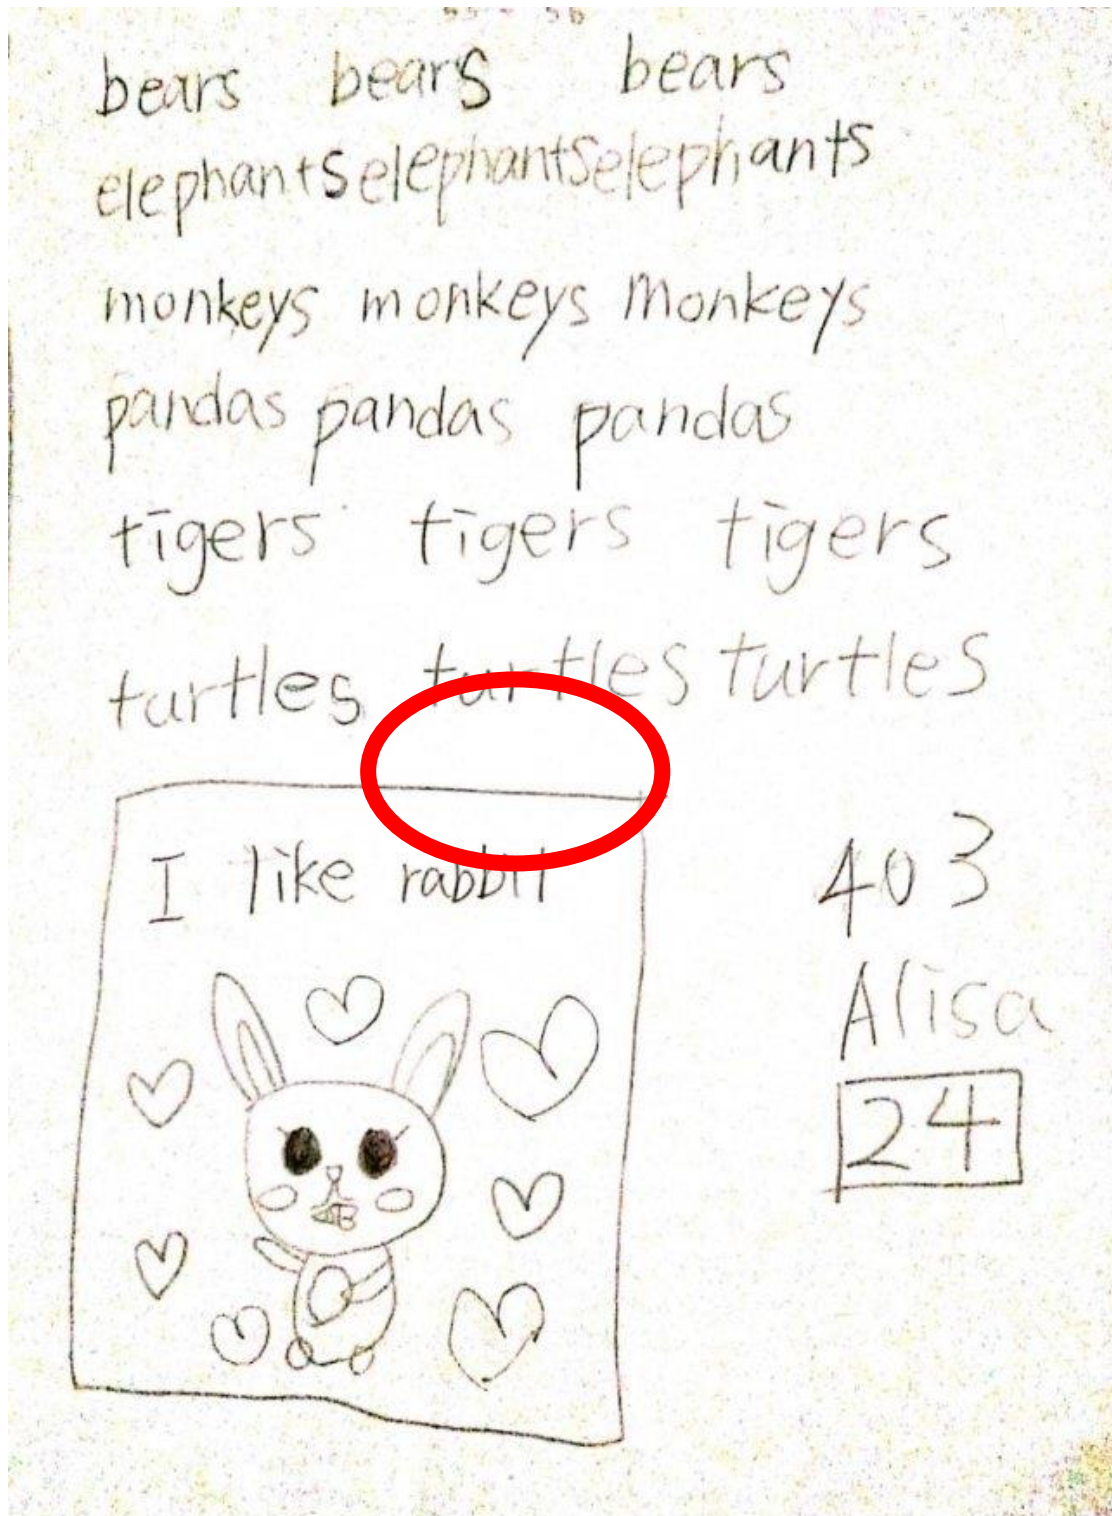 bears bears bears
elephants elephants elephants
monkeys monkeys monkeys
pandas pandas pandas
tigers tigers tigers
turtles turtles turtles
I like rabbit
403
Alisa
24